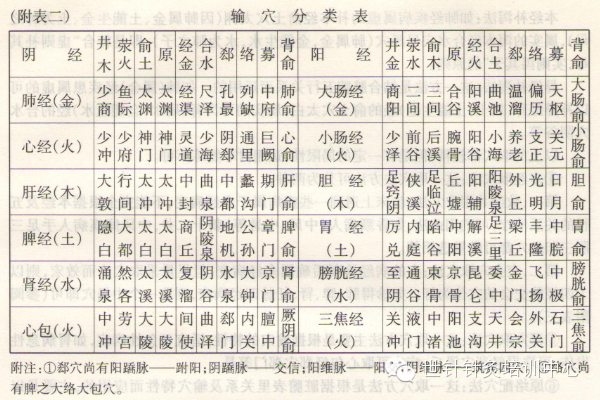 (附表二) 输穴分类表
阴经 井木 荥火 俞土 原 经金 合水 郄 络 募 背俞 阳经 井金 荥水 俞木 原 经火 合土 郄 络 募 背俞
肺经(金) 少商 鱼际 太渊 太渊 经渠 尺泽 孔最 列缺 中府 肺俞 大肠经(金) 商阳 二间 三间 合谷 阳溪 曲池 温溜 偏历 天枢 大肠俞
心经(火) 少冲 少府 神门 神门 灵道 少海 阴郄 通里 巨阙 心俞 小肠经(火) 少泽 前谷 后溪 腕骨 阳谷 小海 养老 支正 关元 小肠俞
肝经(木) 大敦 行间 太冲 太冲 中封 曲泉 中都 蠡沟 期门 肝俞 胆经(木) 足窍阴 侠溪 足临泣 丘墟 阳辅 阳陵泉 外丘 光明 日月 胆俞
脾经(土) 隐白 大都 太白 太白 商丘 阴陵泉 地机 公孙 章门 脾俞 胃经(土) 厉兑 内庭 陷谷 冲阳 解溪 足三里 梁丘 丰隆 中脘 胃俞
肾经(水) 涌泉 然谷 太溪 太溪 复溜 阴谷 水泉 大钟 京门 肾俞 膀胱经(水) 至阴 通谷 束骨 京骨 昆仑 委中 金门 飞扬 中极 膀胱俞
心包(火) 中冲 劳宫 大陵 大陵 间使 曲泽 郄门 内关 膻中 厥阴俞 三焦经(火) 关冲 液门 中渚 阳池 支沟 天井 会宗 外关 石门 三焦俞
附注:①郄穴尚有阳蹻脉——跗阳;阴蹻脉——交信;阳维脉——阳 穴尚
有脾之大络大包穴。
世针针灸培训中心